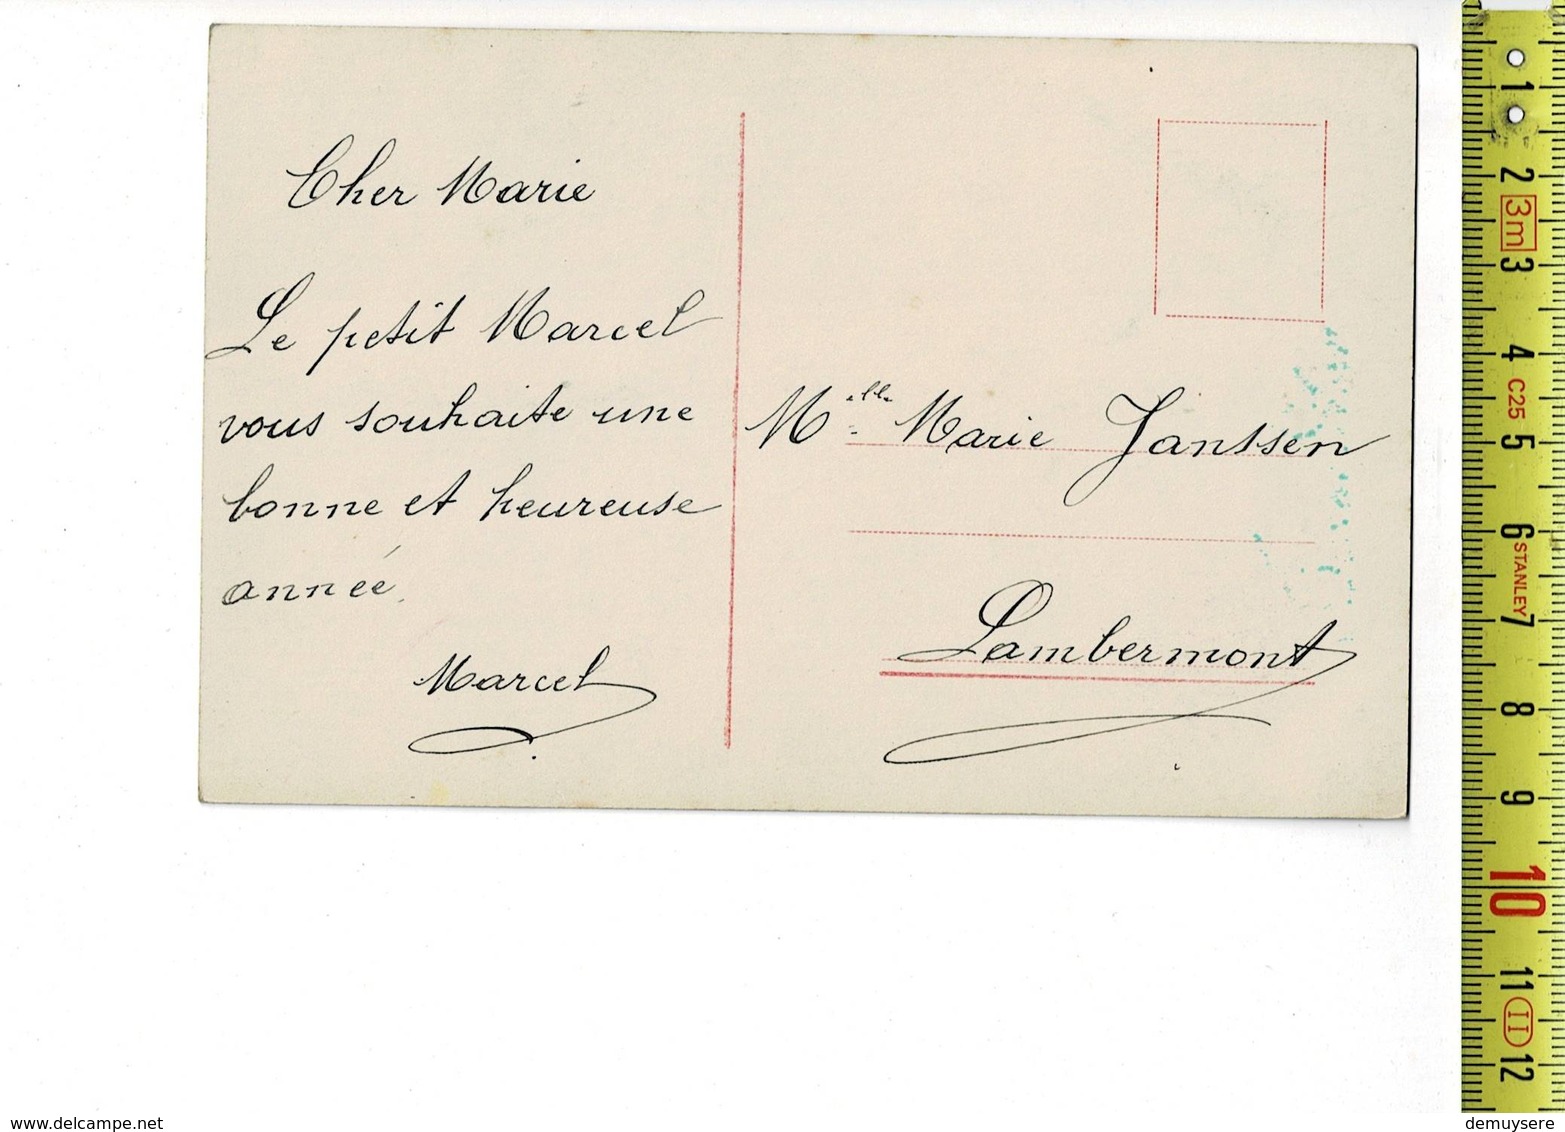 Cher Marie
Le petit Marcel
vous souhaite une
bonne et heureuse
année.
Marcel
Melle Marie Janssen
Lambermont
1
2
3m
3
4
C25
5
6
STANLEY
7
8
9
10
11
II
12
www.delcampe.net
demuysere